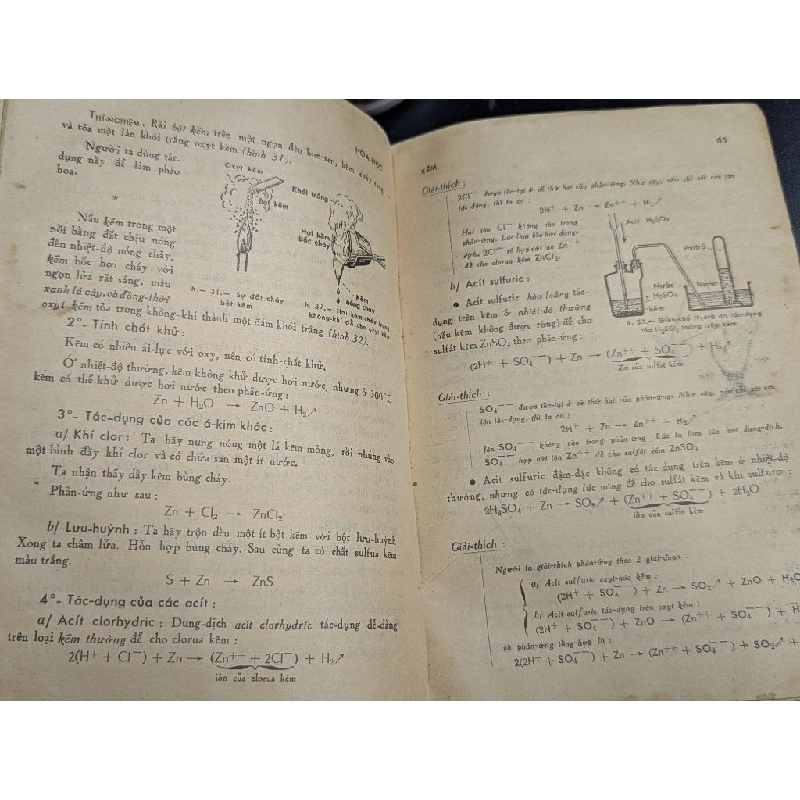 HÓA-HỌC
THÍ-NGHIỆM. Rải bột kẽm trên một ngọn đèn bun-sen; kẽm cháy sáng
và tỏa một làn khói trắng oxyt kẽm (hình 31).
Người ta dùng tác-
dụng này để làm pháo
hoa.
*
Nấu kẽm trong một
nồi bằng đất chịu nóng
đến nhiệt-độ nóng chảy,
kẽm bốc hơi cháy với
ngọn lửa rất sáng, màu
xanh lá cây, và đồng-thời
oxyt kẽm tỏa trong không-khí thành một đám khói trắng (hình 32).
Oxyt kẽm
Bột kẽm
h. — 31.— Sự đốt cháy
bột kẽm
Khói trắng
Hơi kẽm
bốc cháy
Kẽm
nóng chảy
2°- Tính chất khử :
Kẽm có nhiều ái-lực với oxy, nên có tính-chất khử.
Ở nhiệt-độ thường, kẽm không khử được hơi nước, nhưng ở 500°C
kẽm có thể khử được hơi nước theo phản-ứng :
Zn + H₂O → ZnO + H₂↗
3°- Tác-dụng của các á-kim khác:
a/ Khí clor : Ta hãy nung nóng một lá kẽm mỏng, rồi nhúng vào
một bình đầy khí clor và có chứa sẵn một ít nước.
Ta nhận thấy dây kẽm bùng cháy.
Phản-ứng như sau :
Zn + Cl₂ → ZnCl₂
b/ Lưu-huỳnh : Ta hãy trộn đều một ít bột kẽm với bột lưu-huỳnh
Xong ta châm lửa. Hỗn hợp bùng cháy. Sau cùng ta có chất sulfua kẽm
màu trắng.
S + Zn → ZnS
4°- Tác-dụng của các acít :
a/ Acít clorhydric : Dung-dịch acit clorhydric tác-dụng dễ-dàng
trên loại kẽm thường để cho clorua kẽm :
2(H⁺ + Cl⁻) + Zn → (Zn⁺⁺ + 2Cl⁻) + H₂↗
iôn của clorua kẽm
KẼM
65
Giải-thích :
2Cl⁻ được tồn-tại ở cả
tác dụng, thì ta có :
2H⁺ + Zn → Zn⁺⁺ + H₂↗
Hai ion Cl⁻ không
để cho clorua kẽm ZnCl₂.
Acít H₂SO₄
Hydrô
Nước
+ H₂SO₄
kẽm
Nước
b/ Acít sulfuric :
• Acít sulfuric hòa loãng tác-
dụng trên kẽm ở nhiệt-độ thường
(nếu kẽm không được ròng) để cho
sulfát kẽm ZnSO₄ theo phản-ứng :
(2H⁺ + SO₄⁻⁻) + Zn → (Zn⁺⁺ + SO₄⁻⁻) + H₂↗
Giải-thích :
SO₄⁻⁻ được tồn-tại ở cả
tác-dụng, thì ta có :
2H⁺ + Zn → Zn⁺⁺ + H₂↗
SO₄⁻⁻ hợp với ion Zn⁺⁺ để cho sulfát kẽm ZnSO₄
• Acít sulfuric đậm-đặc không có tác dụng trên kẽm ở nhiệt-độ
thường, nhưng có tác-dụng lúc nóng để cho sulfát kẽm và khí sulfurơ :
2H₂SO₄ + Zn → SO₂↗ + (Zn⁺⁺ + SO₄⁻⁻) + 2H₂O
iôn của sulfát kẽm
Giải-thích :
Người ta giải-thích phản-ứng theo 2 giai-đoạn :
a/ Acít sulfuric oxyt-hóa kẽm :
(2H⁺ + SO₄⁻⁻) + Zn → SO₂↗ + ZnO + H₂O
b/ Acít sulfuric tác-dụng trên oxyt kẽm :
(2H⁺ + SO₄⁻⁻) + ZnO → (Zn⁺⁺ + SO₄⁻⁻) +
và phản-ứng tổng hợp là :
2(2H⁺ + SO₄⁻⁻) + Zn → (Zn⁺⁺ + SO₄⁻⁻) + SO₂↗ +